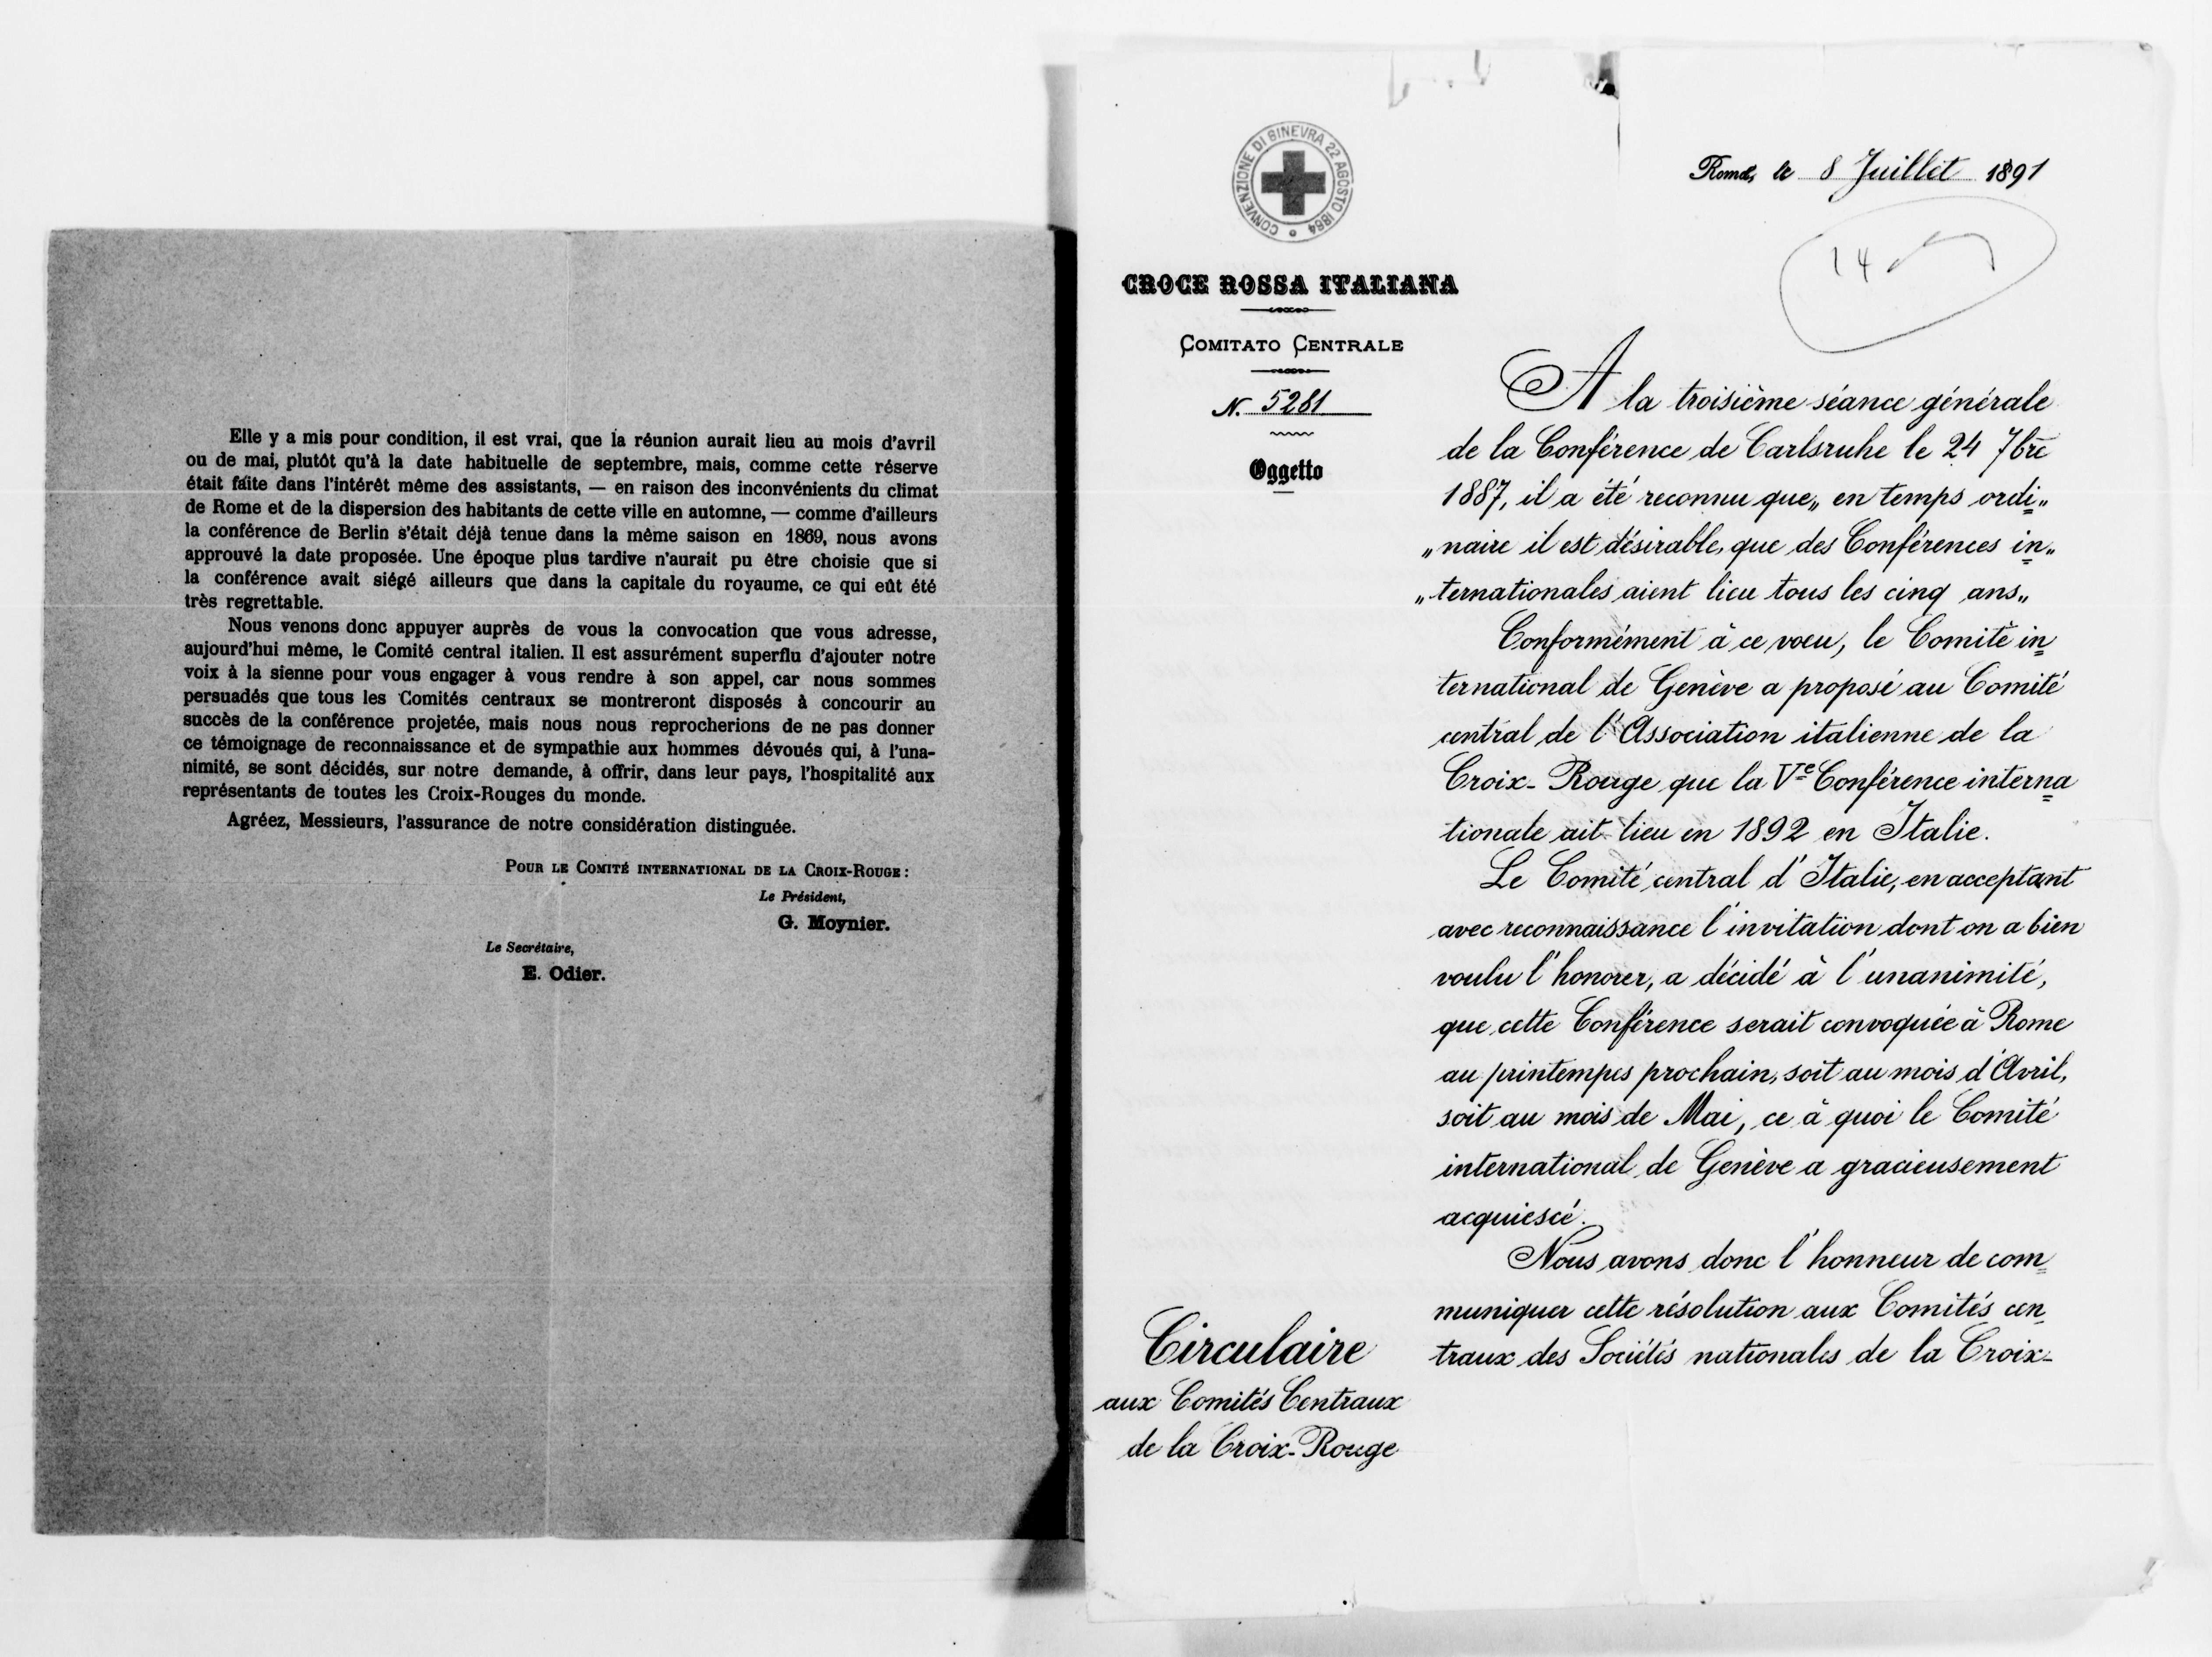 Elle y a mis pour condition, il est vrai, que la réunion aurait lieu au mois d'avril
ou de mai, plutôt qu'à la date habituelle de septembre, mais, comme cette réserve
était faite dans l'intérêt même des assistants, — en raison des inconvénients du climat
de Rome et de la dispersion des habitants de cette ville en automne, — comme d'ailleurs
la conférence de Berlin s'était déjà tenue dans la même saison en 1869, nous avons
approuvé la date proposée. Une époque plus tardive n'aurait pu être choisie que si
la conférence avait siégé ailleurs que dans la capitale du royaume, ce qui eût été
très regrettable.
Nous venons donc appuyer auprès de vous la convocation que vous adresse,
aujourd'hui même, le Comité central italien. Il est assurément superflu d'ajouter notre
voix à la sienne pour vous engager à vous rendre à son appel, car nous sommes
persuadés que tous les Comités centraux se montreront disposés à concourir au
succès de la conférence projetée, mais nous nous reprocherions de ne pas donner
ce témoignage de reconnaissance et de sympathie aux hommes dévoués qui, à l'una-
nimité, se sont décidés, sur notre demande, à offrir, dans leur pays, l'hospitalité aux
représentants de toutes les Croix-Rouges du monde.
Agréez, Messieurs, l'assurance de notre considération distinguée.
POUR LE COMITÉ INTERNATIONAL DE LA CROIX-ROUGE :
Le Président,
G. Moynier.
Le Secrétaire,
E. Odier.
CONVENZIONE DI GINEVRA 22 AGOSTO 1864
CROCE ROSSA ITALIANA
COMITATO CENTRALE
N. 5281
Oggetto
Rome, le 8 Juillet 1891
14
A la troisième séance générale
de la Conférence de Carlsruhe le 24 7bre
1887, il a été reconnu que „ en temps ordi„
„naire il est désirable, que des Conférences in„
„ternationales aient lieu tous les cinq ans„
Conformément à ce voeu, le Comité in=
ternational de Genève a proposé au Comité
central de l'Association italienne de la
Croix-Rouge que la Ve Conférence interna=
tionale ait lieu en 1892 en Italie.
Le Comité central d'Italie, en acceptant
avec reconnaissance l'invitation dont on a bien
voulu l'honorer, a décidé à l'unanimité,
que cette Conférence serait convoquée à Rome
au printemps prochain, soit au mois d'Avril,
soit au mois de Mai, ce à quoi le Comité
international de Genève a gracieusement
acquiescé.
Nous avons donc l'honneur de com=
muniquer cette résolution aux Comités cen=
traux des Sociétés nationales de la Croix-
Circulaire
aux Comités Centraux
de la Croix-Rouge